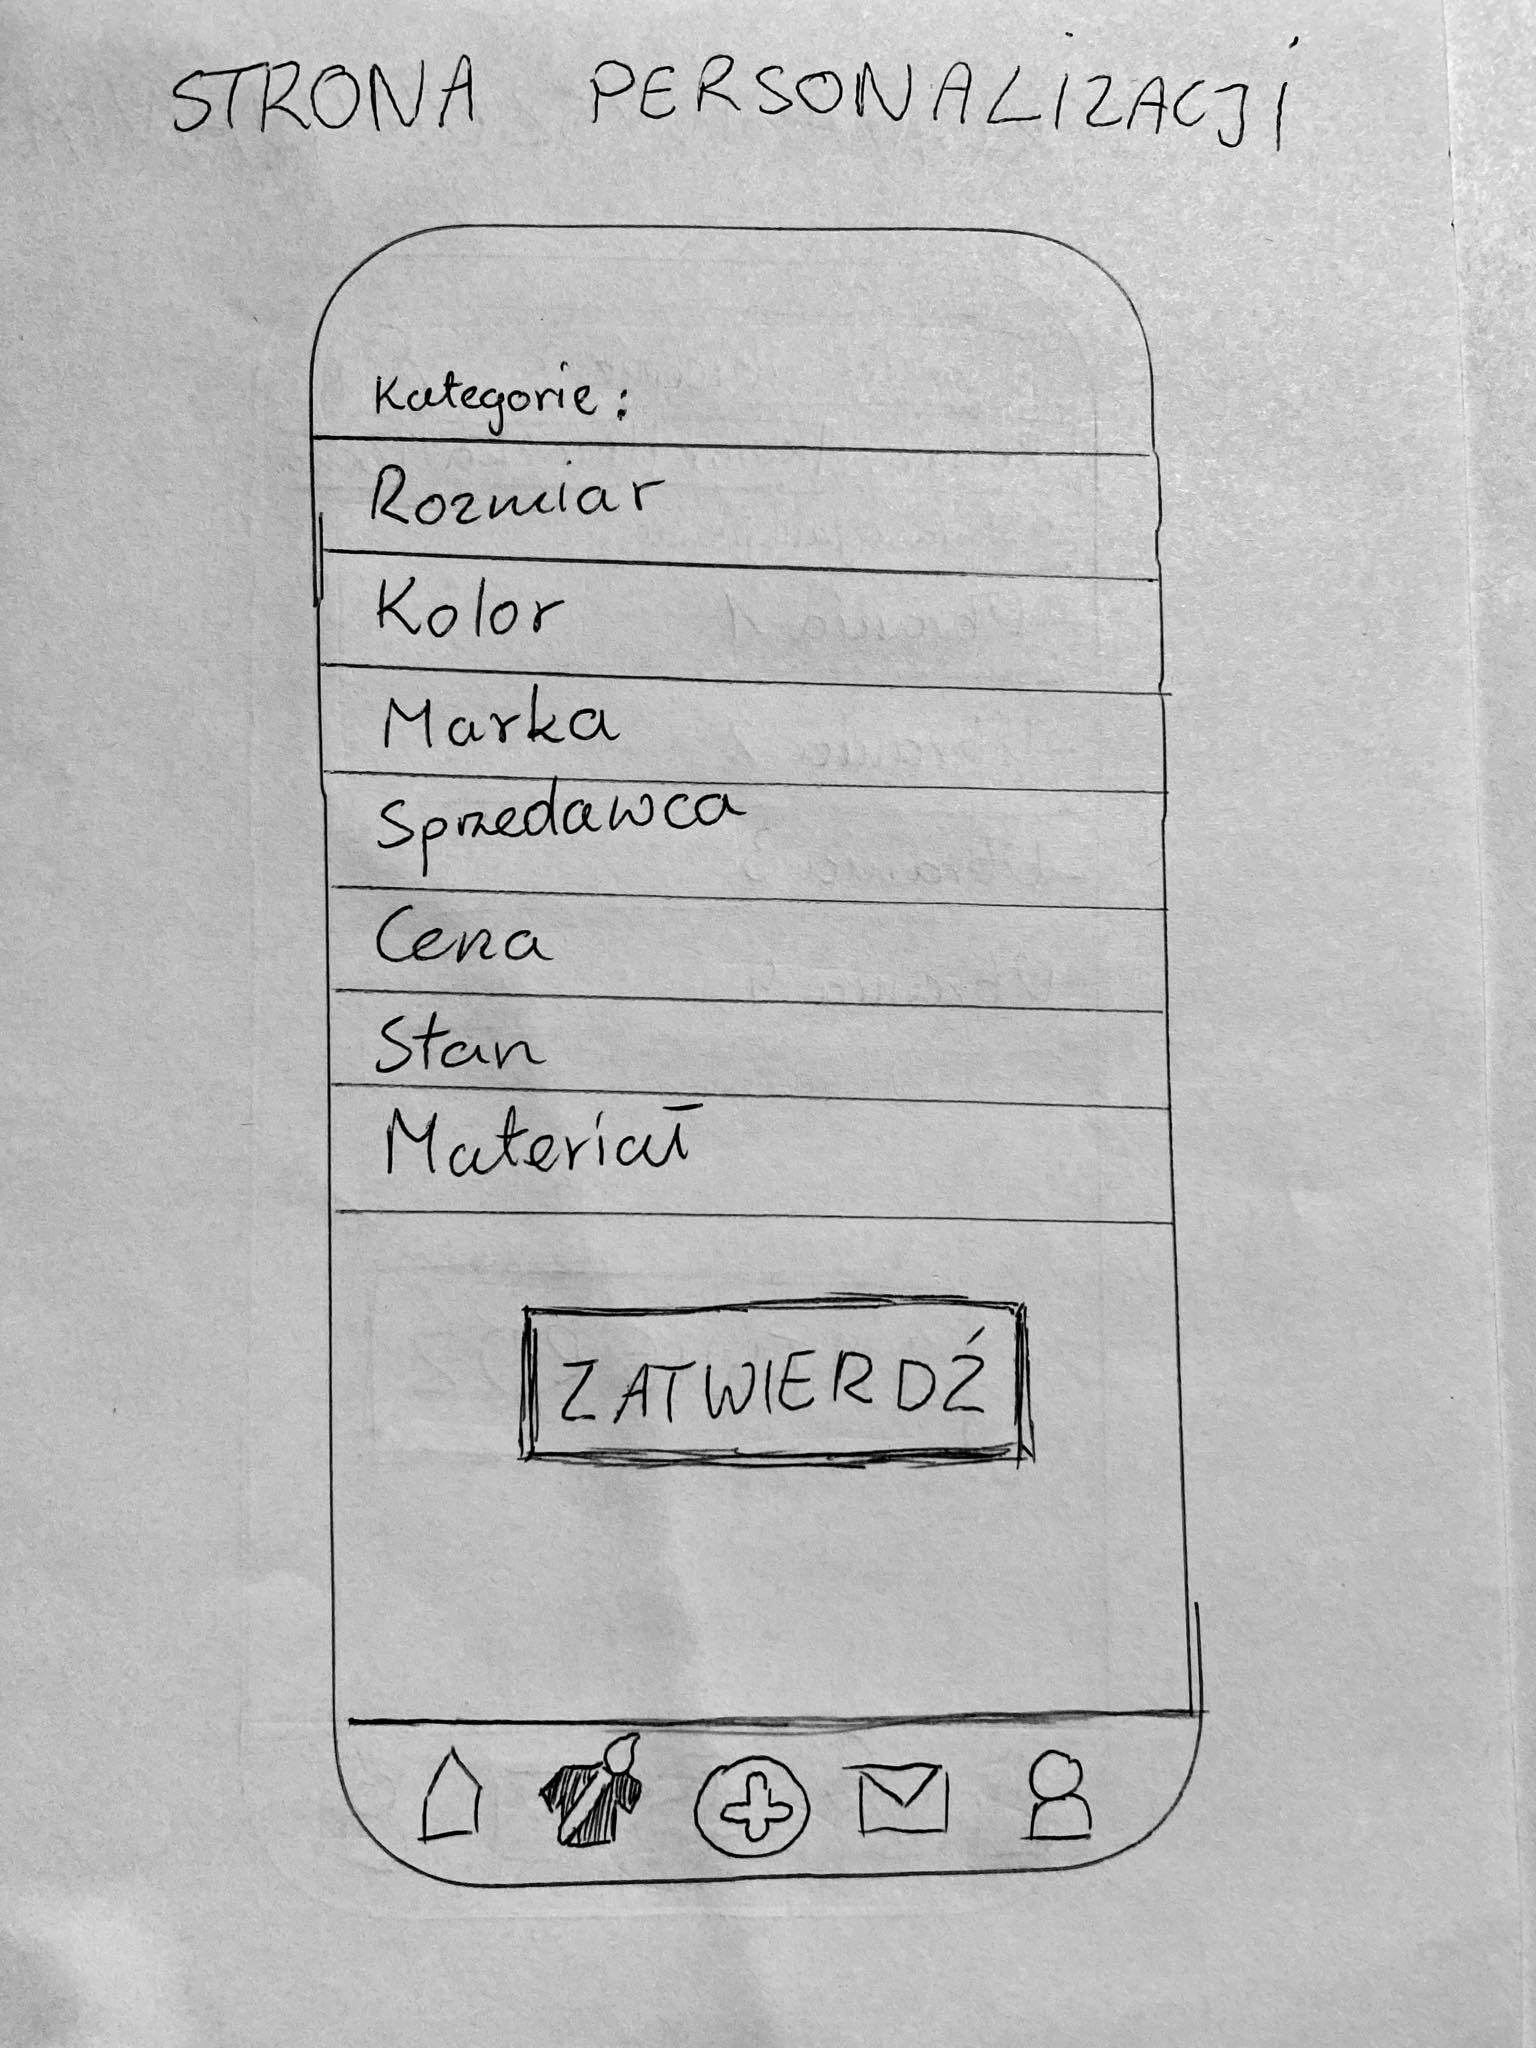 STRONA PERSONALIZACJI
Kategorie:
Rozmiar
Kolor
Marka
Sprzedawca
Cena
Stan
Materiał
ZATWIERDŹ